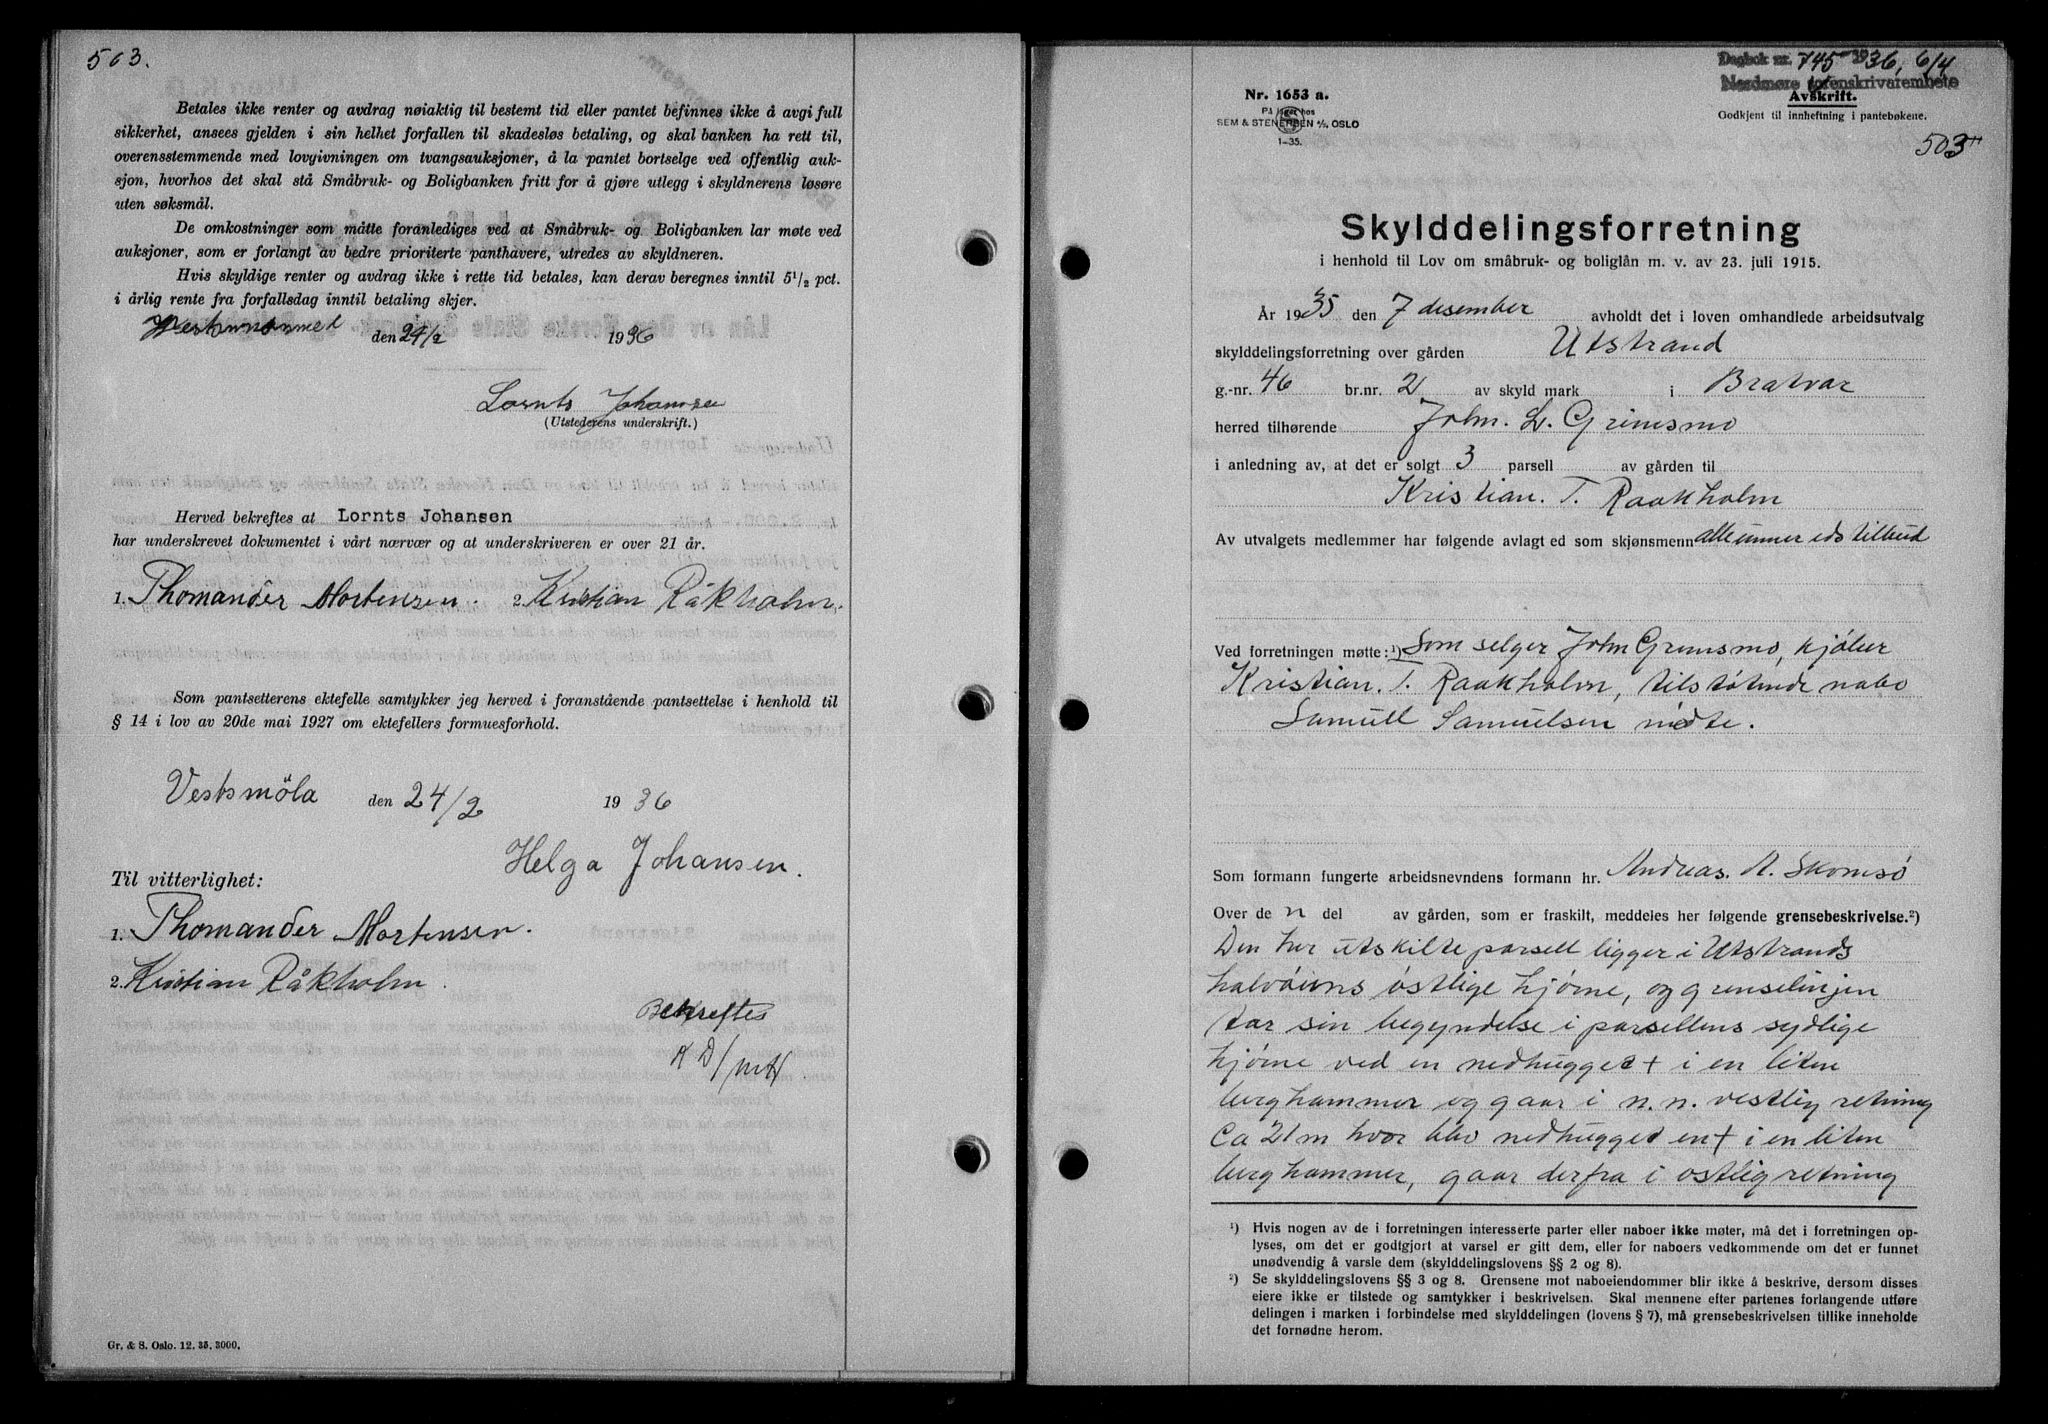 503.
Betales ikke renter og avdrag nøiaktig til bestemt tid eller pantet befinnes ikke å avgi full
sikkerhet, ansees gjelden i sin helhet forfallen til skadesløs betaling, og skal banken ha rett til,
overensstemmende med lovgivningen om tvangsauksjoner, å la pantet bortselge ved offentlig auk-
sjon, hvorhos det skal stå Småbruk- og Boligbanken fritt for å gjøre utlegg i skyldnerens løsøre
uten søksmål.
De omkostninger som måtte foranlediges ved at Småbruk- og Boligbanken lar møte ved
auksjoner, som er forlangt av bedre prioriterte panthavere, utredes av skyldneren.
Hvis skyldige renter og avdrag ikke i rette tid betales, kan derav beregnes inntil 5½ pct.
i årlig rente fra forfallsdag inntil betaling skjer.
den 24/2 1936
Lornts Johansen
(Utstederens underskrift.)
Herved bekreftes at Lornts Johansen
har underskrevet dokumentet i vårt nærvær og at underskriveren er over 21 år.
1. Thomander Mortensen. 2. Kristian Råkholm.
Som pantsetterens ektefelle samtykker jeg herved i foranstående pantsettelse i henhold til
§ 14 i lov av 20de mai 1927 om ektefellers formuesforhold.
Vestsmöla den 24/2 1936
Helga Johansen.
Til vitterlighet:
1. Thomander Mortensen.
2. Kristian Råkholm.
Bekreftes
K D/
Gr. & S. Oslo. 12. 35. 3000.
Dagbok nr. 745 1936, 6/4
Nordmøre sorenskrivarembete
Nr. 1653 a.
Avskrift.
På lager hos
SEM & STENERSEN A/S, OSLO
1-35.
Godkjent til innheftning i pantebøkene.
503
Skylddelingsforretning
i henhold til Lov om småbruk- og boliglån m. v. av 23. juli 1915.
År 1935 den 7 desember avholdt det i loven omhandlede arbeidsutvalg
skylddelingsforretning over gården Utstrand
g.-nr. 46 br.nr. 2 av skyld mark i Bratvær
herred tilhørende John. L. Grimsmo
i anledning av, at det er solgt 3 parsell av gården til
Kristian. T. Raakholm
Av utvalgets medlemmer har følgende avlagt ed som skjønsmenn alle unner eds tilbud
Ved forretningen møtte: ¹) Som selger John Grimsmo, kjøber
Kristian. T. Raakholm, tilstøtende nabo
Samuel Samuelsen møtte.
Som formann fungerte arbeidsnevndens formann hr. Andreas. A. Skomsø
Over de n del av gården, som er fraskilt, meddeles her følgende grensebeskrivelse.²)
Den her utskilte parsell ligger i Utstrands
halvøiens østlige hjørne, og grenselinjen
tar sin begyndelse i parsellens sydlige
hjørne ved en nedhugget + i en liten
berghammer og gaar i n. n. vestlig retning
Ca 21 m hvor blev nedhugget en + i en liten
berghammer, gaar derfra i østlig retning
¹) Hvis nogen av de i forretningen interesserte parter eller naboer ikke møter, må det i forretningen op-
lyses, om det er godtgjort at varsel er gitt dem, eller for naboers vedkommende om det er funnet
unødvendig å varsle dem (skylddelingslovens §§ 2 og 8).
²) Se skylddelingslovens §§ 3 og 8. Grensene mot naboeiendommer blir ikke å beskrive, dersom disses
eiere ikke er tilstede og samtykker i beskrivelsen. Skal mennene efter partenes forlangende utføre
delingen i marken i forbindelse med skylddelingen (lovens § 7), må grensebeskrivelsen tillike inneholde
det fornødne herom.